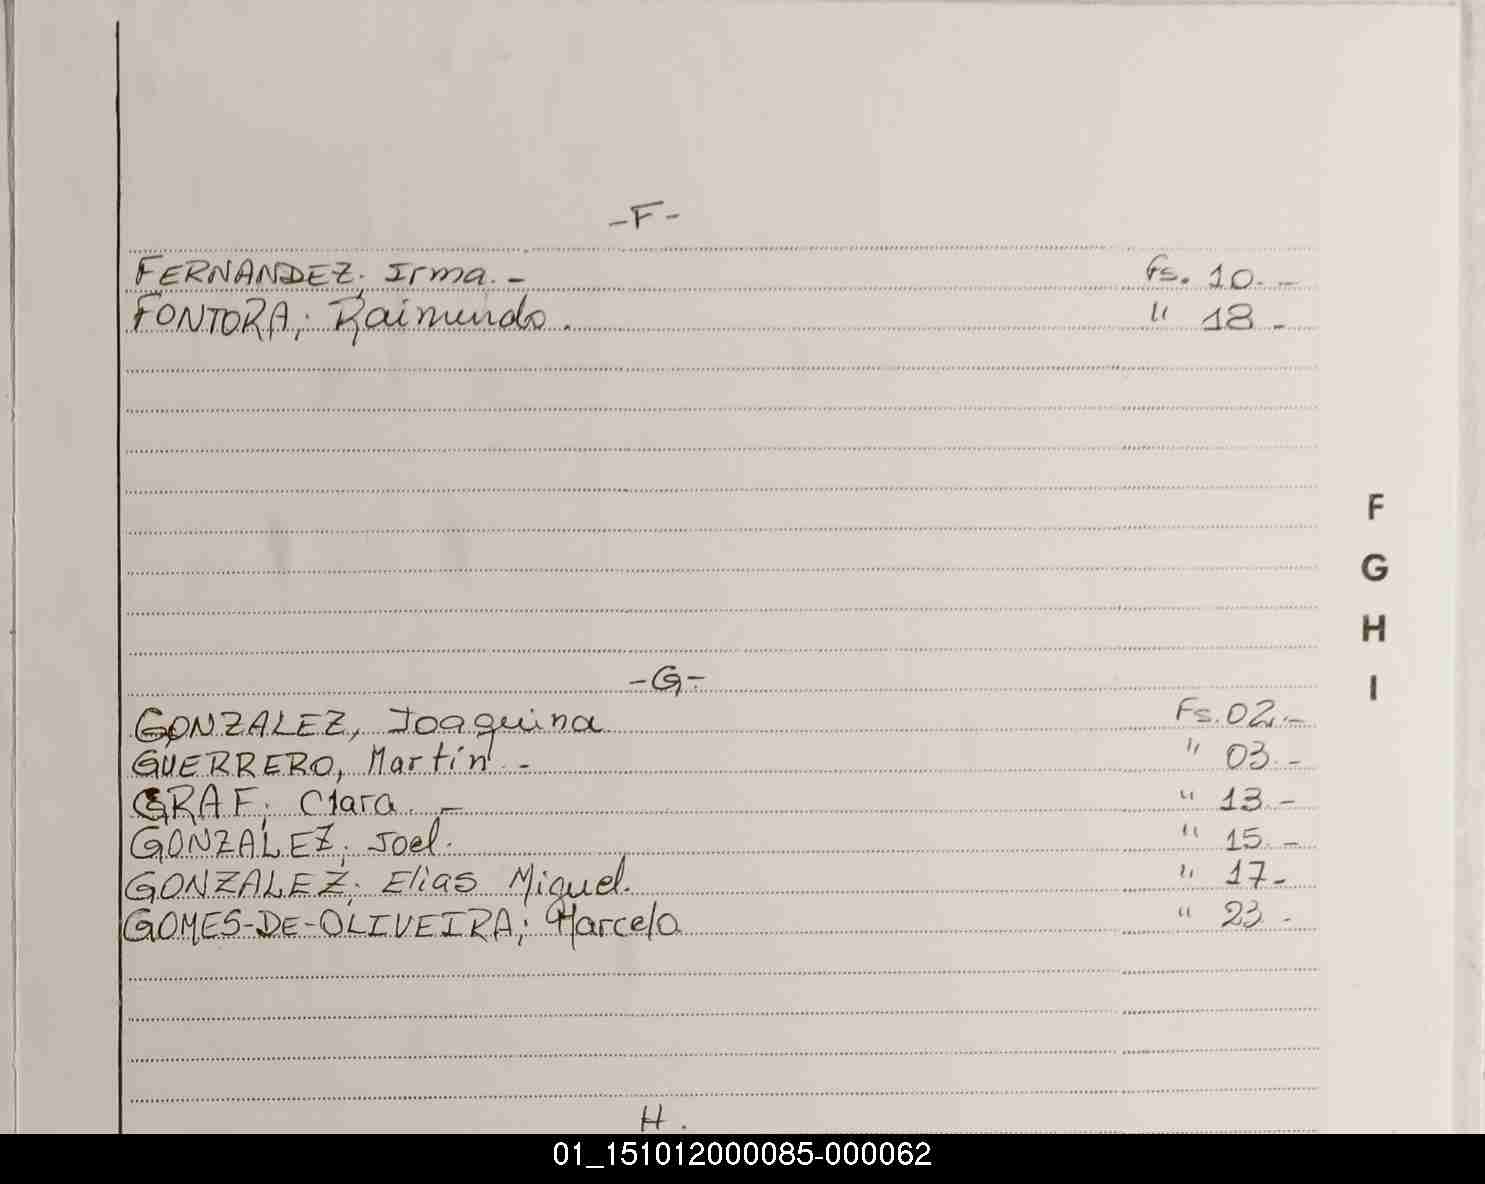 -F-
FERNANDEZ; Irma.- Fs. 10.-
FONTORA; Raimundo. " 18-
F
G
H
I
-G-
GONZALEZ, Joaquina Fs. 02.-
GUERRERO, Martin - " 03.-
GRAF; Clara. - " 13.-
GONZALEZ; Joel. " 15.-
GONZALEZ; Elias Miguel. " 17-
GOMES-DE-OLIVEIRA; Marcelo " 23-
H.
01_151012000085-000062